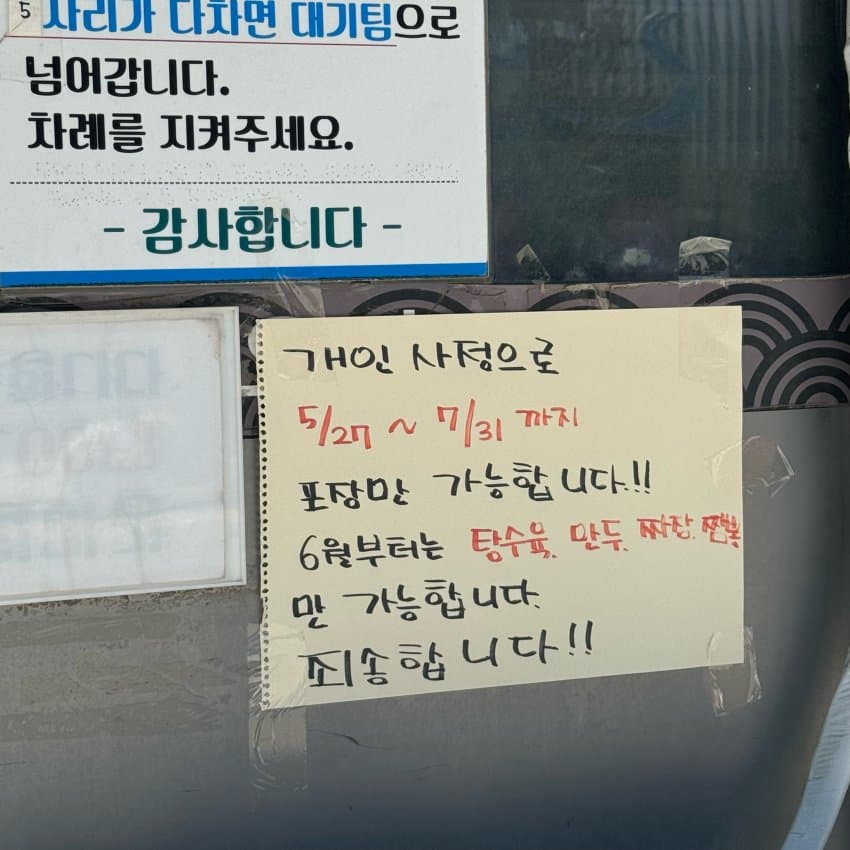 5
자리가 다차면 대기팀으로
넘어갑니다.
차례를 지켜주세요.
- 감사합니다 -
개인 사정으로
5/27 ~ 7/31 까지
포장만 가능합니다!!
6월부터는 탕수육. 만두. 짜장. 짬뽕
만 가능합니다.
죄송합니다!!